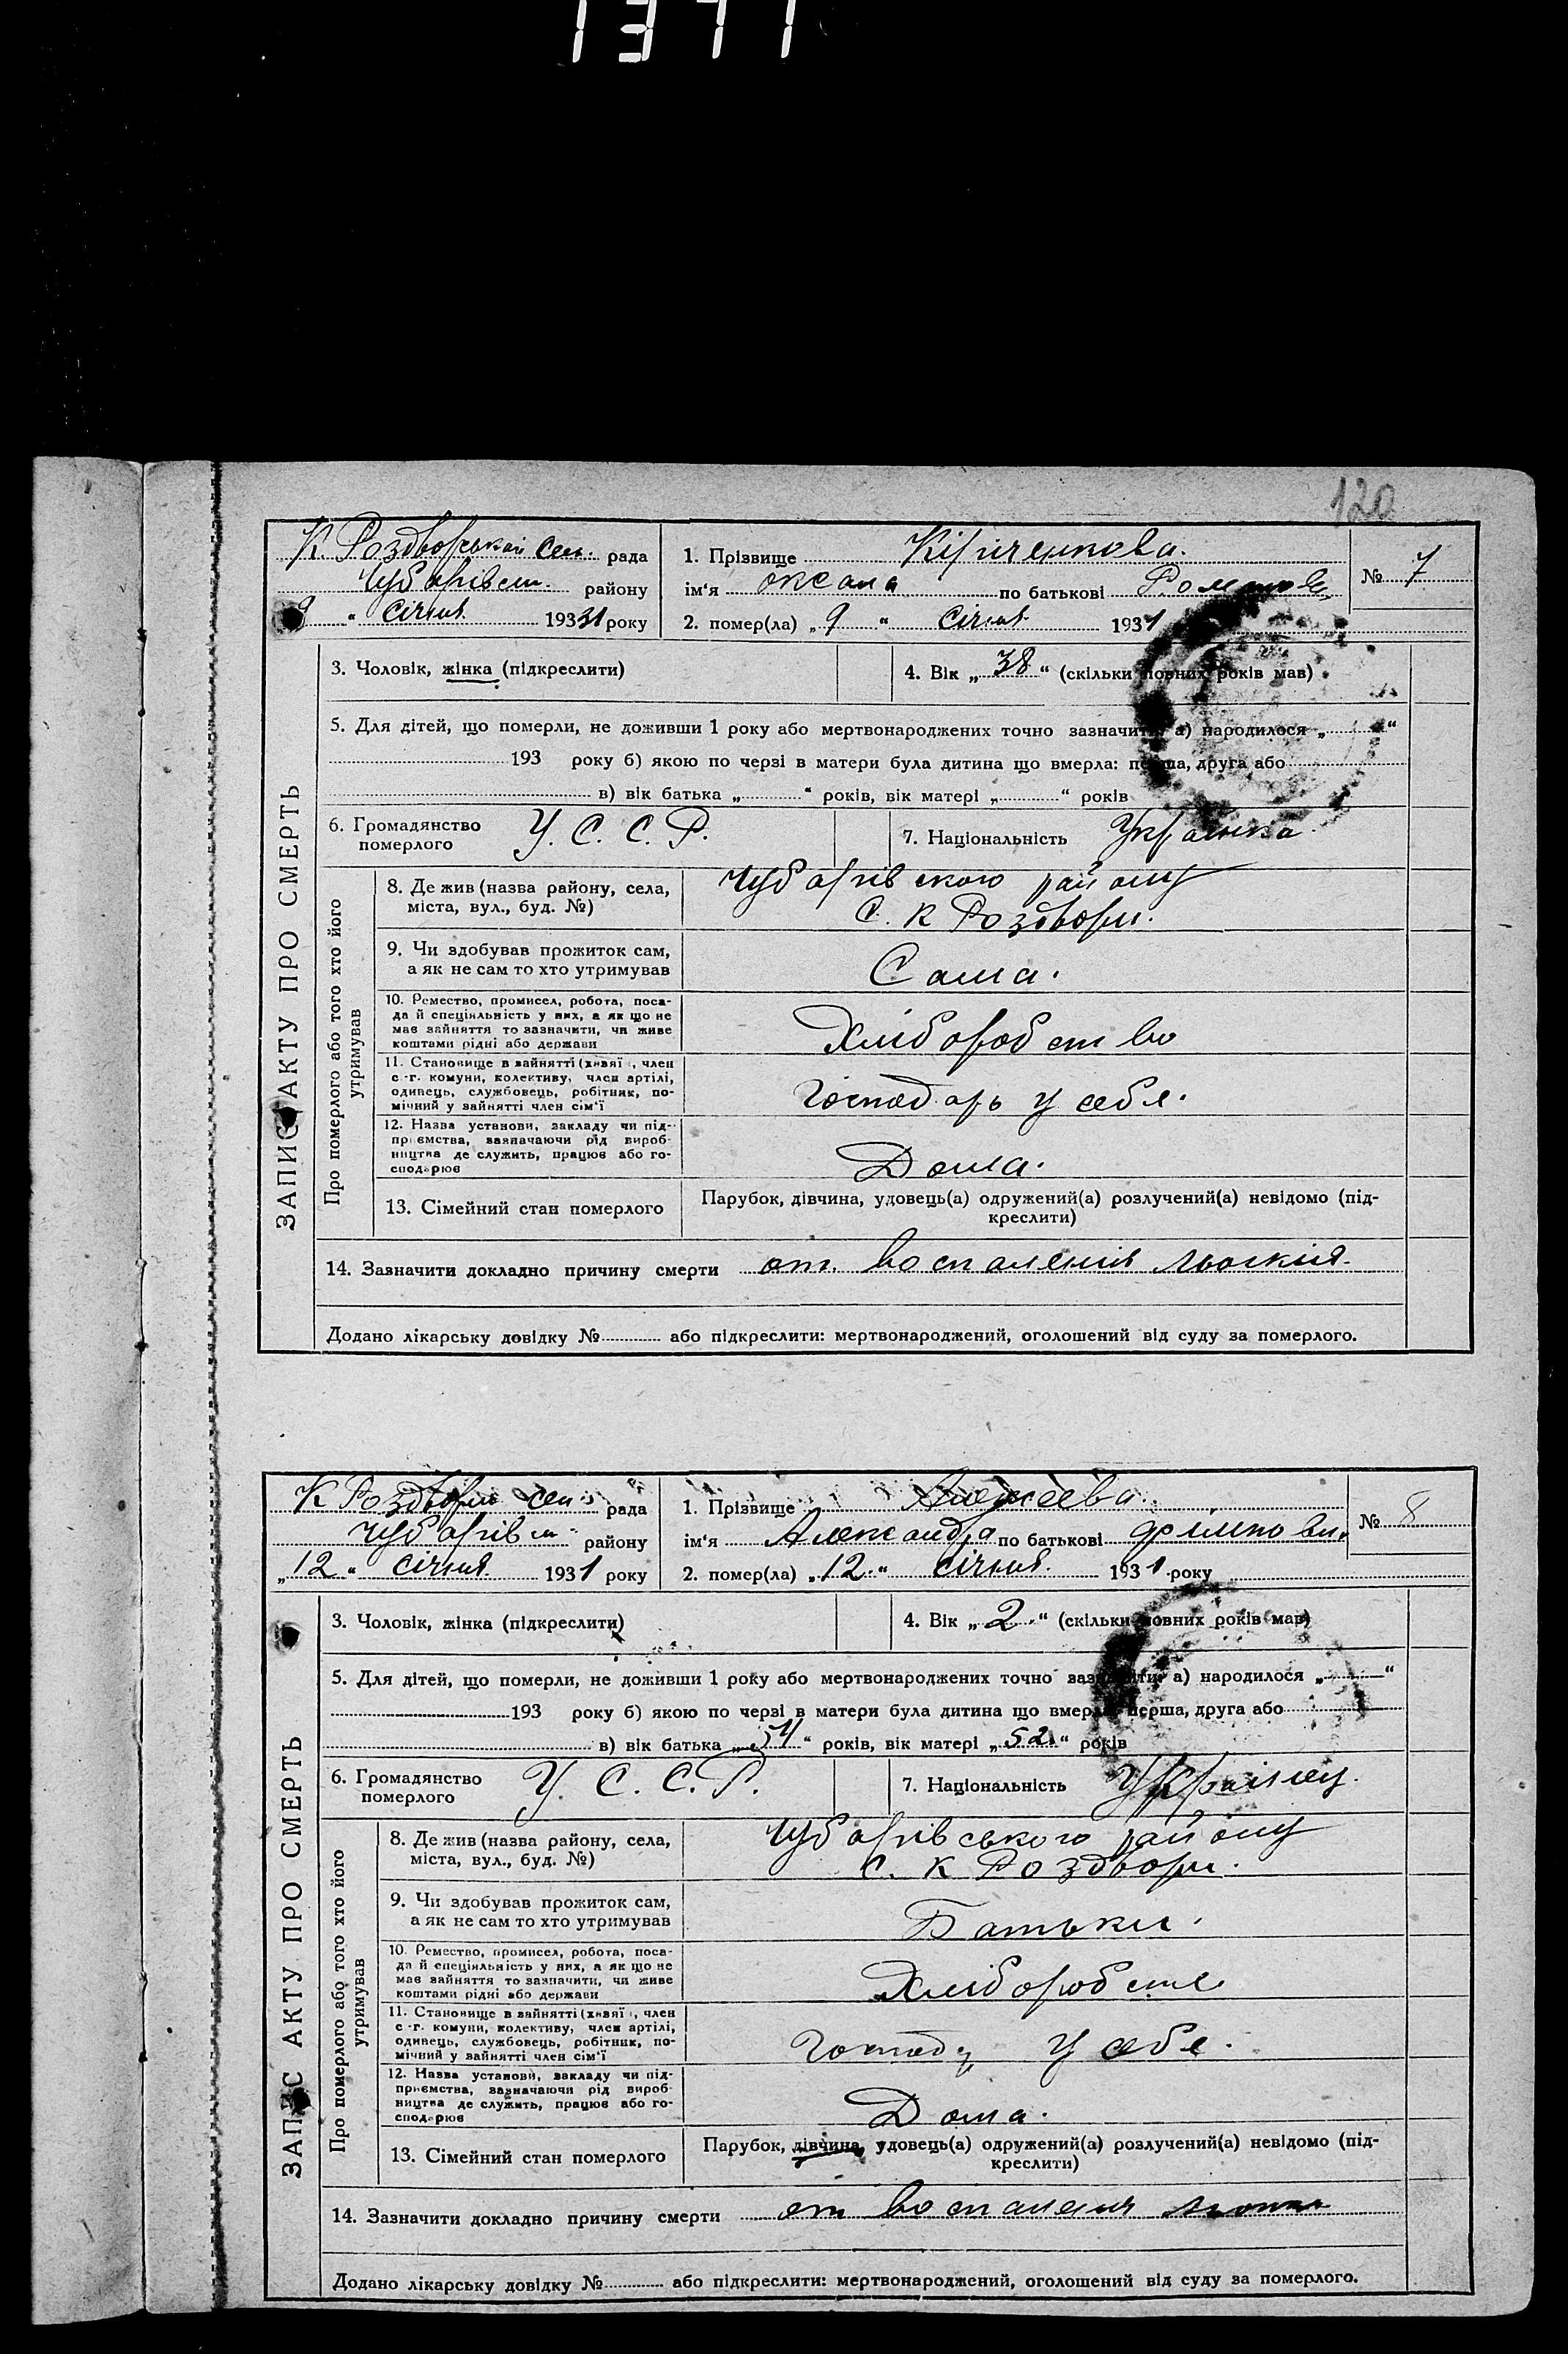 1371
120
К. Роздворської Сель. рада
Чубарівськ. району
9 " Січня 1931 року
1. Прізвище Кіріченкова.
ім'я Оксана по батькові Романов.
№ 7
2. помер(ла) „ 9 " Січня 1931
3. Чоловік, жінка (підкреслити)
4. Вік „ 38 " (скільки повних років мав)
5. Для дітей, що померли, не доживши 1 року або мертвонароджених точно зазначити а) народилося „ "
193 року б) якою по черзі в матери була дитина що вмерла: перша, друга або
в) вік батька „ " років, вік матері „ " років
6. Громадянство
померлого
У. С. С. Р.
7. Національність Українка
ЗАПИС АКТУ ПРО СМЕРТЬ
Про померлого або того хто його
утримував
8. Де жив (назва району, села,
міста, вул., буд. №)
Чубарівського району
С. К Роздори.
9. Чи здобував прожиток сам,
а як не сам то хто утримував
Сама.
10. Ремество, промисел, робота, поса-
да й спеціяльність у них, а як що не
має зайняття то зазначити, чи живе
коштами рідні або держави
Хліборобство
11. Становище в зайнятті (хазяї , член
с.-г. комуни, колективу, член артілі,
одинець, службовець, робітник, по-
мічний у зайнятті член сім'ї
Господарь у себе.
12. Назва установи, закладу чи під-
приємства, зазначаючи рід вироб-
ництва де служить, працює або го-
сподарює
Дома.
13. Сімейний стан померлого
Парубок, дівчина, удовець(а) одружений(а) розлучений(а) невідомо (під-
креслити)
14. Зазначити докладно причину смерти от. воспаления
Додано лікарську довідку № або підкреслити: мертвонароджений, оголошений від суду за померлого.
К Роздори сель рада
Чубарівськ району
„ 12 " січня 1931 року
1. Прізвище
ім'я Александра по батькові
№ 8
2. помер(ла) „ 12. " січня. 1931 року
3. Чоловік, жінка (підкреслити)
4. Вік „ 2 " (скільки повних років мав)
5. Для дітей, що померли, не доживши 1 року або мертвонароджених точно зазначити а) народилося „ "
193 року б) якою по черзі в матери була дитина що вмерла: перша, друга або
в) вік батька „ 54 " років, вік матері „ 52 " років
6. Громадянство
померлого
У. С. С. Р.
7. Національність Українец.
ЗАПИС АКТУ ПРО СМЕРТЬ
Про померлого або того хто його
утримував
8. Де жив (назва району, села,
міста, вул., буд. №)
Чубарівського району
С. К Роздори.
9. Чи здобував прожиток сам,
а як не сам то хто утримував
Батьки.
10. Ремество, промисел, робота, поса-
да й спеціяльність у них, а як що не
має зайняття то зазначити, чи живе
коштами рідні або держави
Хліборобств
11. Становище в зайнятті (хазяї , член
с.-г. комуни, колективу, член артілі,
одинець, службовець, робітник, по-
мічний у зайнятті член сім'ї
Господ у себе.
12. Назва установи, закладу чи під-
приємства, зазначаючи рід вироб-
ництва де служить, працює або го-
сподарює
Дома.
13. Сімейний стан померлого
Парубок, дівчина, удовець(а) одружений(а) розлучений(а) невідомо (під-
креслити)
14. Зазначити докладно причину смерти от воспаленя
Додано лікарську довідку № або підкреслити: мертвонароджений, оголошений від суду за померлого.